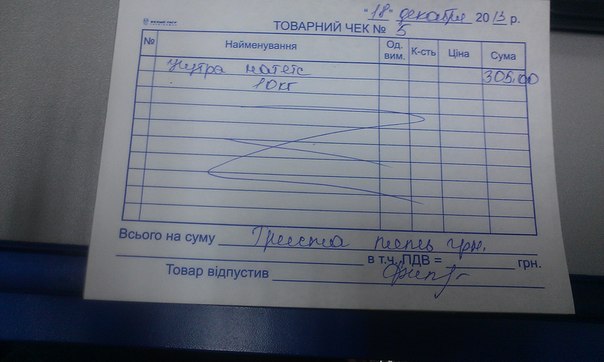 "18" декабря 2013 р.
ТОВАРНИЙ ЧЕК № 5
№ Найменування Од. вим. К-сть Ціна Сума
нутра 305.00
10кг
Всього на суму Триста пять грн.
в т.ч. ПДВ = грн.
Товар відпустив